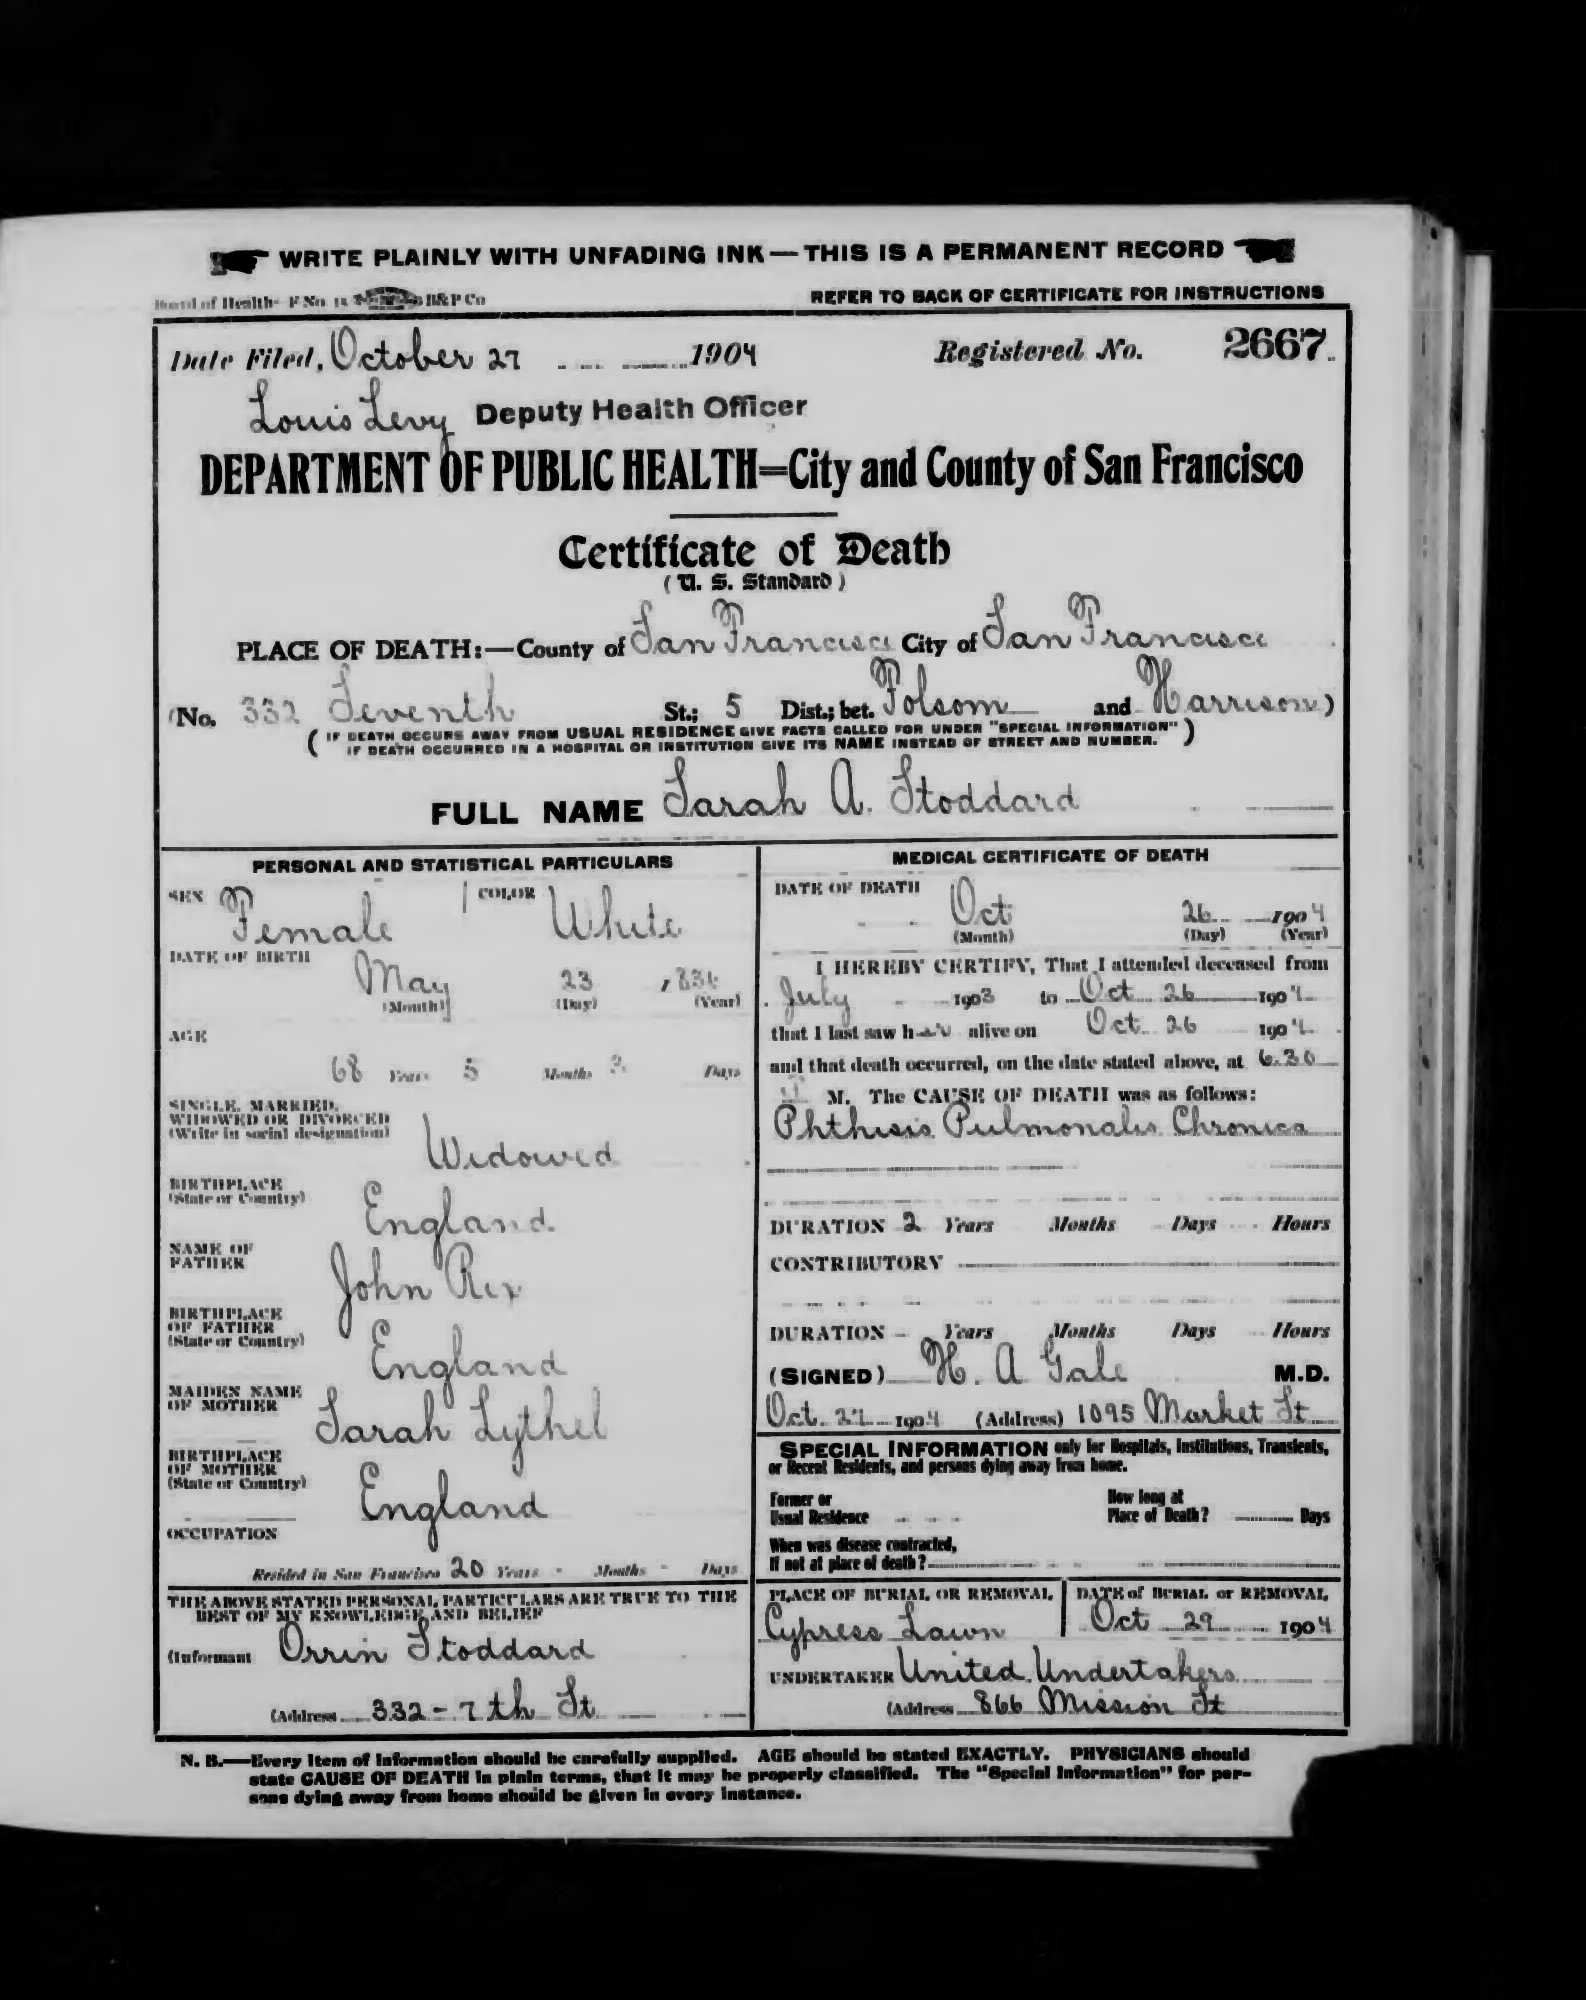 WRITE PLAINLY WITH UNFADING INK — THIS IS A PERMANENT RECORD
Board of Health- F No. B&P Co
REFER TO BACK OF CERTIFICATE FOR INSTRUCTIONS
Date Filed, October 27 1904 Registered No. 2667
Louis Levy Deputy Health Officer
DEPARTMENT OF PUBLIC HEALTH=City and County of San Francisco
Certificate of Death
( U. S. Standard )
PLACE OF DEATH:—County of San Francisco City of San Francisco
(No. 332 Seventh St.; 5 Dist.; bet. Folsom and Harrison )
( IF DEATH OCCURS AWAY FROM USUAL RESIDENCE GIVE FACTS CALLED FOR UNDER "SPECIAL INFORMATION"
IF DEATH OCCURRED IN A HOSPITAL OR INSTITUTION GIVE ITS NAME INSTEAD OF STREET AND NUMBER. )
FULL NAME Sarah A. Stoddard
PERSONAL AND STATISTICAL PARTICULARS
SEX Female COLOR White
DATE OF BIRTH
May 23 , 836
(Month) (Day) (Year)
AGE
68 Years 5 Months 3 Days
SINGLE, MARRIED,
WIDOWED OR DIVORCED
(Write in social designation)
Widowed
BIRTHPLACE
(State or Country)
England
NAME OF
FATHER
John Rix
BIRTHPLACE
OF FATHER
(State or Country)
England
MAIDEN NAME
OF MOTHER
Sarah Lythel
BIRTHPLACE
OF MOTHER
(State or Country)
England
OCCUPATION
Resided in San Francisco 20 Years - Months - Days
THE ABOVE STATED PERSONAL PARTICULARS ARE TRUE TO THE
BEST OF MY KNOWLEDGE AND BELIEF
(Informant Orrin Stoddard
(Address 332 - 7th St
MEDICAL CERTIFICATE OF DEATH
DATE OF DEATH
Oct 26 1904
(Month) (Day) (Year)
I HEREBY CERTIFY, That I attended deceased from
July 1903 to Oct 26 1904
that I last saw her alive on Oct 26 1904
and that death occurred, on the date stated above, at 6.30
M. The CAUSE OF DEATH was as follows:
Phthisis Pulmonalis Chronica
DURATION 2 Years Months Days Hours
CONTRIBUTORY
DURATION Years Months Days Hours
(SIGNED) H. A Gale M.D.
Oct. 27 1904 (Address) 1095 Market St
SPECIAL INFORMATION only for Hospitals, Institutions, Transients,
or Recent Residents, and persons dying away from home.
Former or
Usual Residence
How long at
Place of Death? Days
When was disease contracted,
If not at place of death?
PLACE OF BURIAL OR REMOVAL
Cypress Lawn
DATE of BURIAL or REMOVAL
Oct 29 1904
UNDERTAKER United Undertakers
(Address 866 Mission St
N. B.—Every item of information should be carefully supplied. AGE should be stated EXACTLY. PHYSICIANS should
state CAUSE OF DEATH in plain terms, that it may be properly classified. The "Special Information" for per-
sons dying away from home should be given in every instance.